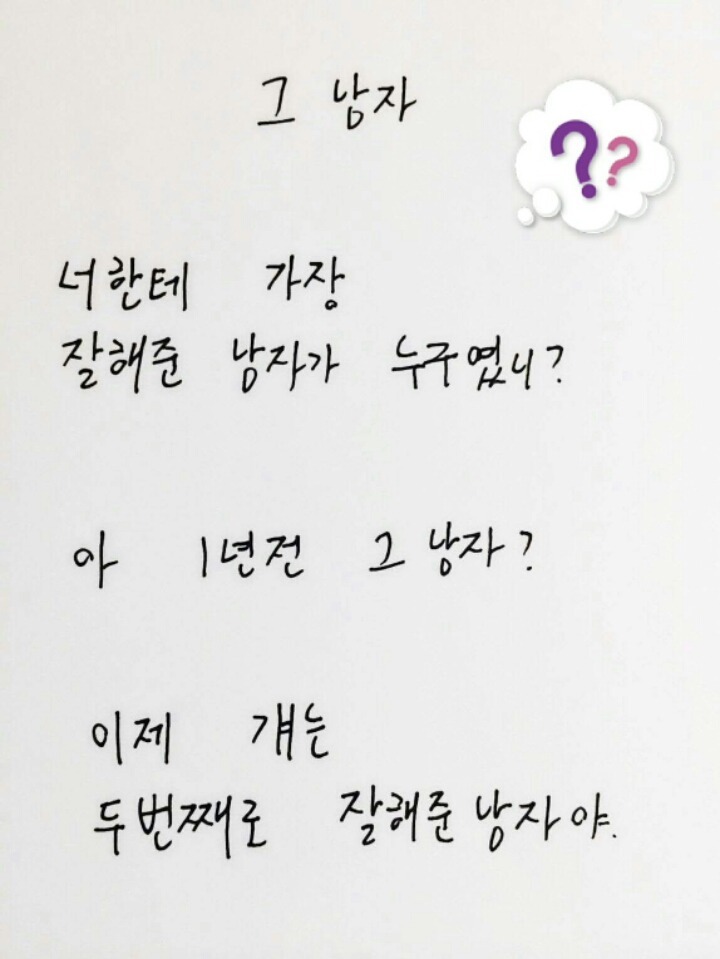 그 남자
??
너한테 가장
잘해준 남자가 누구였니?
아 1년전 그 남자?
이제 걔는
두번째로 잘해준 남자야.